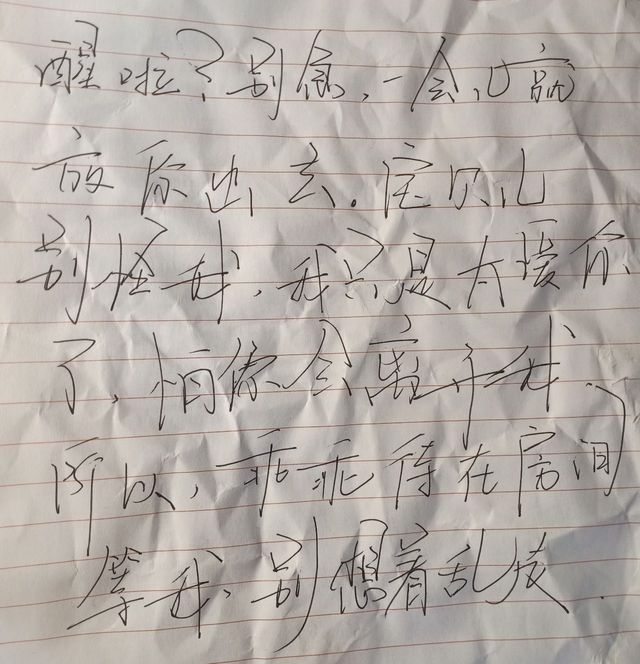 醒啦？别急，一会儿就
放你出去。宝贝儿
别怪我，我只是太爱你
了，怕你会离开我。
所以，乖乖待在房间
等我，别想着乱跑。